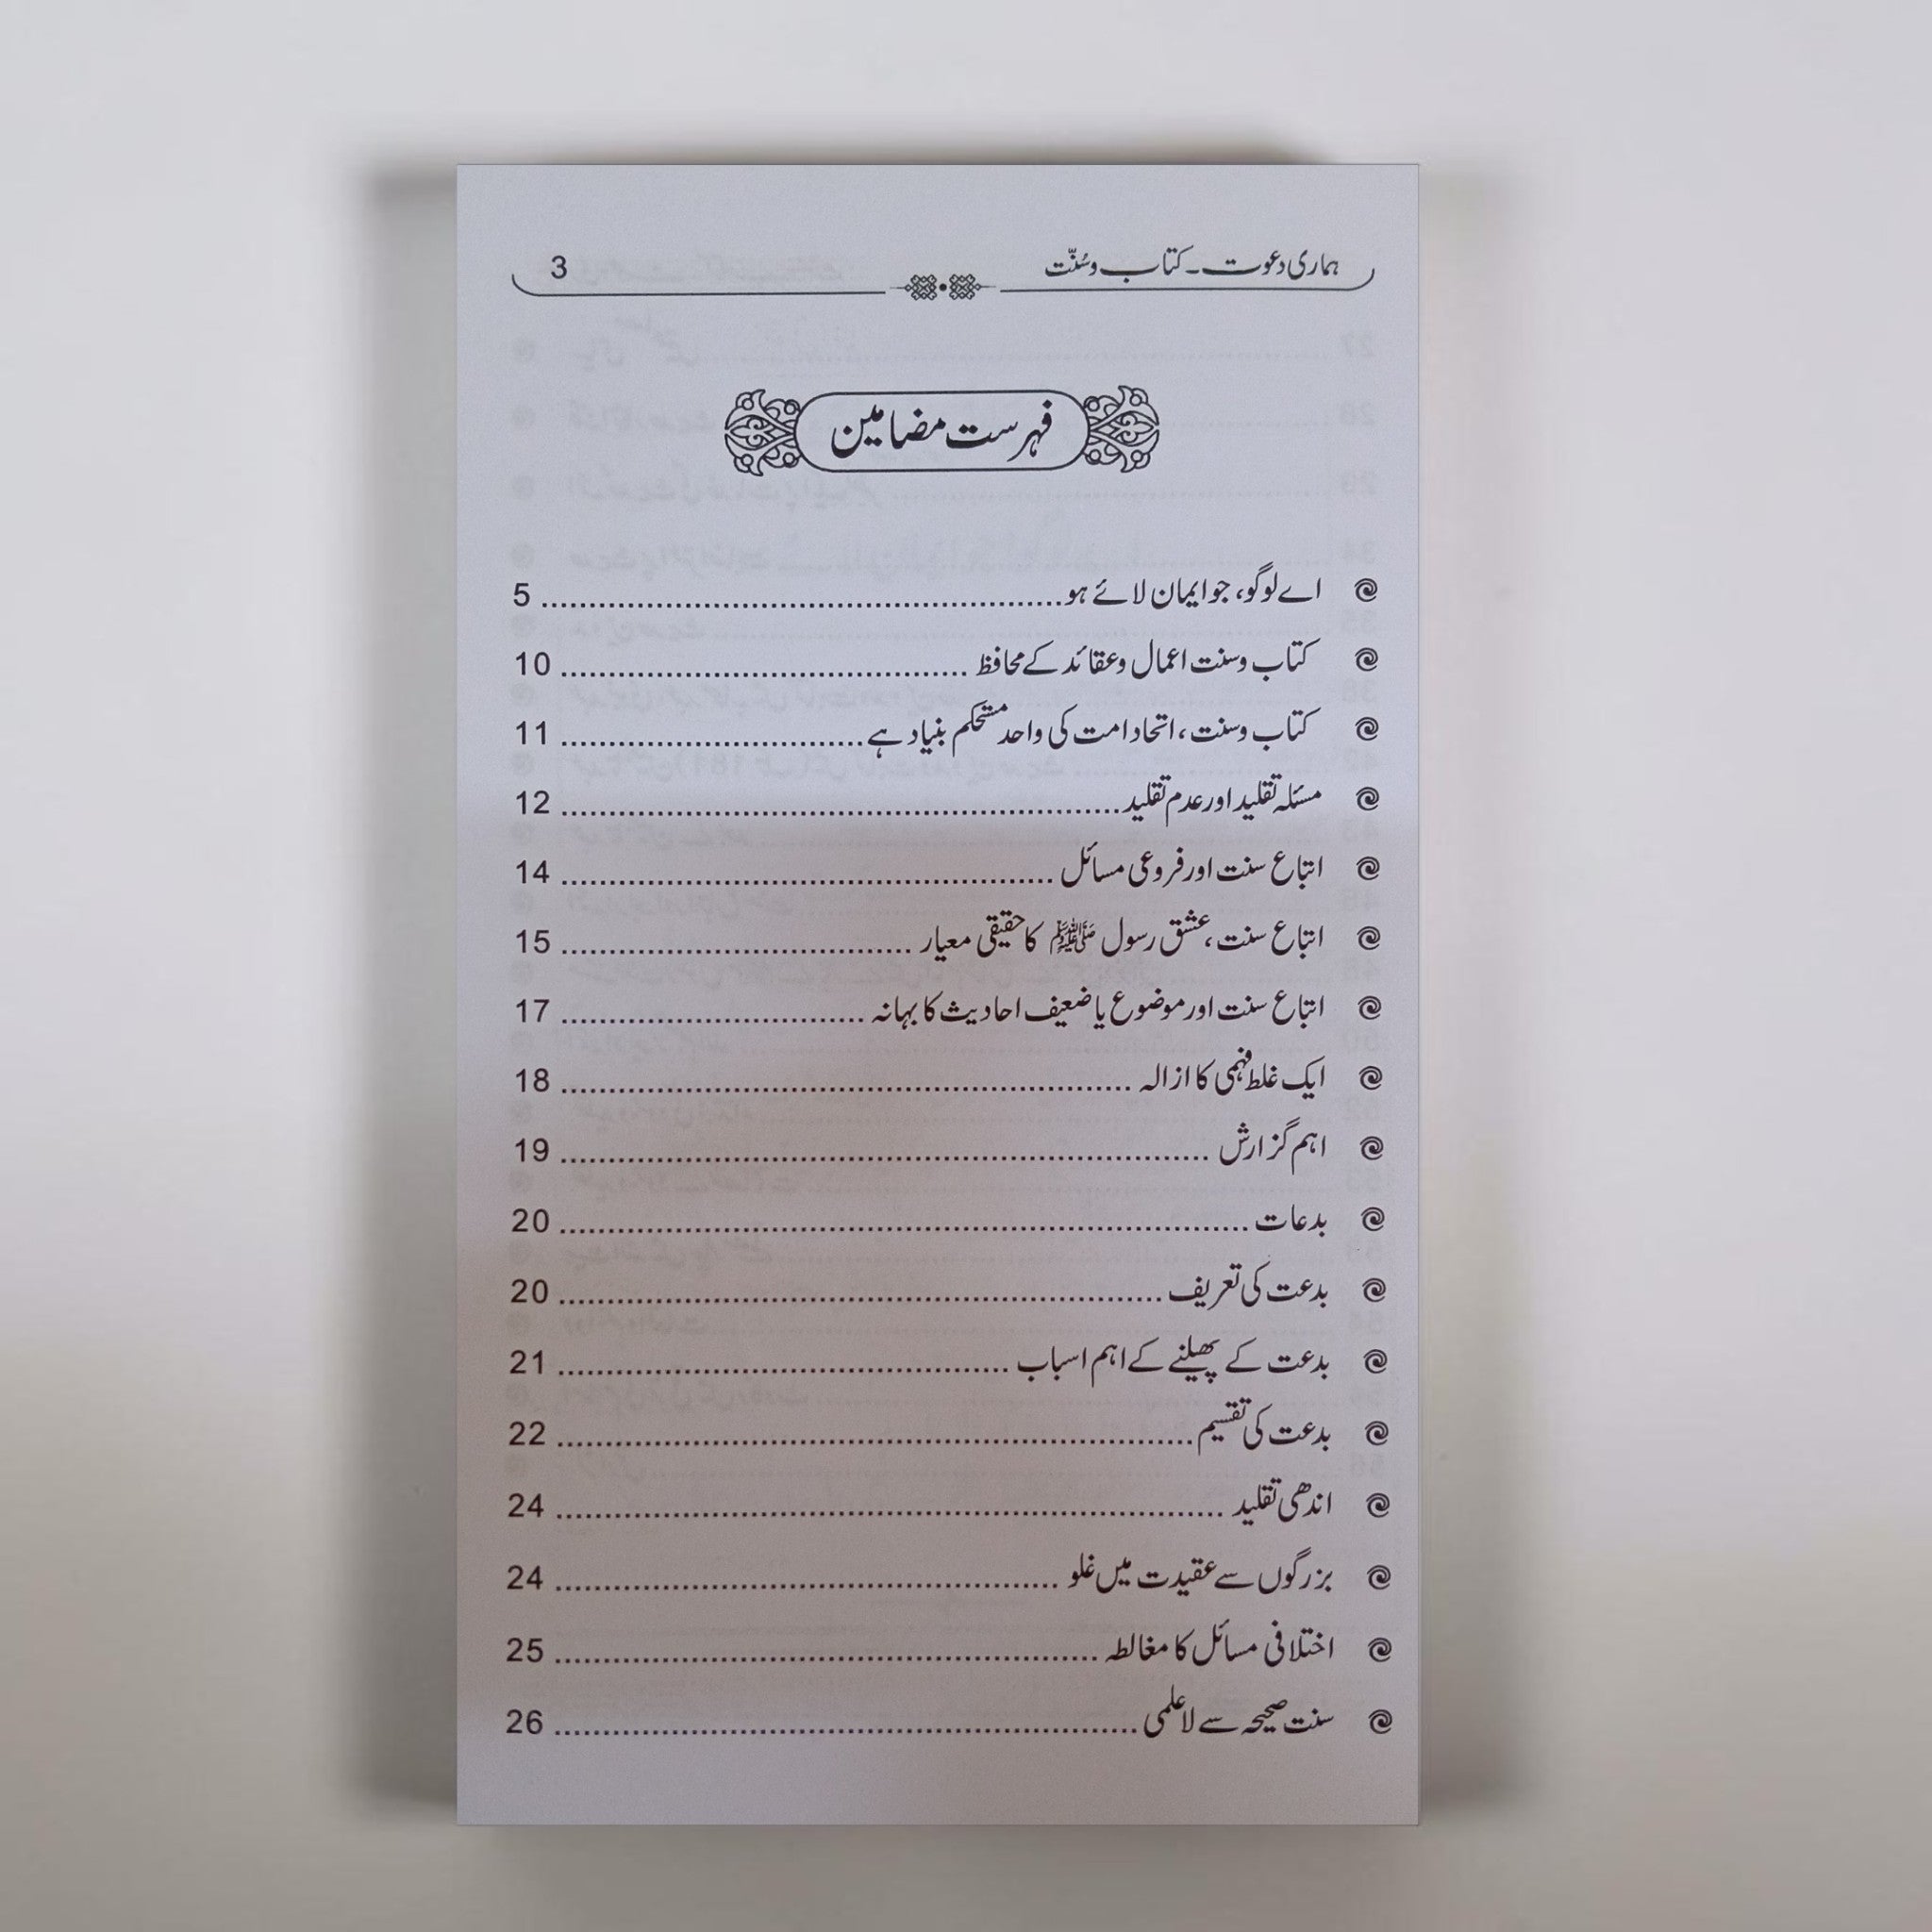 ہماری دعوت۔ کتاب و سُنّت 3
فہرست مضامین
اے لوگو، جو ایمان لائے ہو ........ 5
کتاب و سنت اعمال و عقائد کے محافظ ........ 10
کتاب و سنت، اتحاد امت کی واحد مستحکم بنیاد ہے ........ 11
مسئلہ تقلید اور عدم تقلید ........ 12
اتباع سنت اور فروعی مسائل ........ 14
اتباع سنت، عشق رسول ﷺ کا حقیقی معیار ........ 15
اتباع سنت اور موضوع یا ضعیف احادیث کا بہانہ ........ 17
ایک غلط فہمی کا ازالہ ........ 18
اہم گزارش ........ 19
بدعات ........ 20
بدعت کی تعریف ........ 20
بدعت کے پھیلنے کے اہم اسباب ........ 21
بدعت کی تقسیم ........ 22
اندھی تقلید ........ 24
بزرگوں سے عقیدت میں غلو ........ 24
اختلافی مسائل کا مغالطہ ........ 25
سنت صحیحہ سے لاعلمی ........ 26